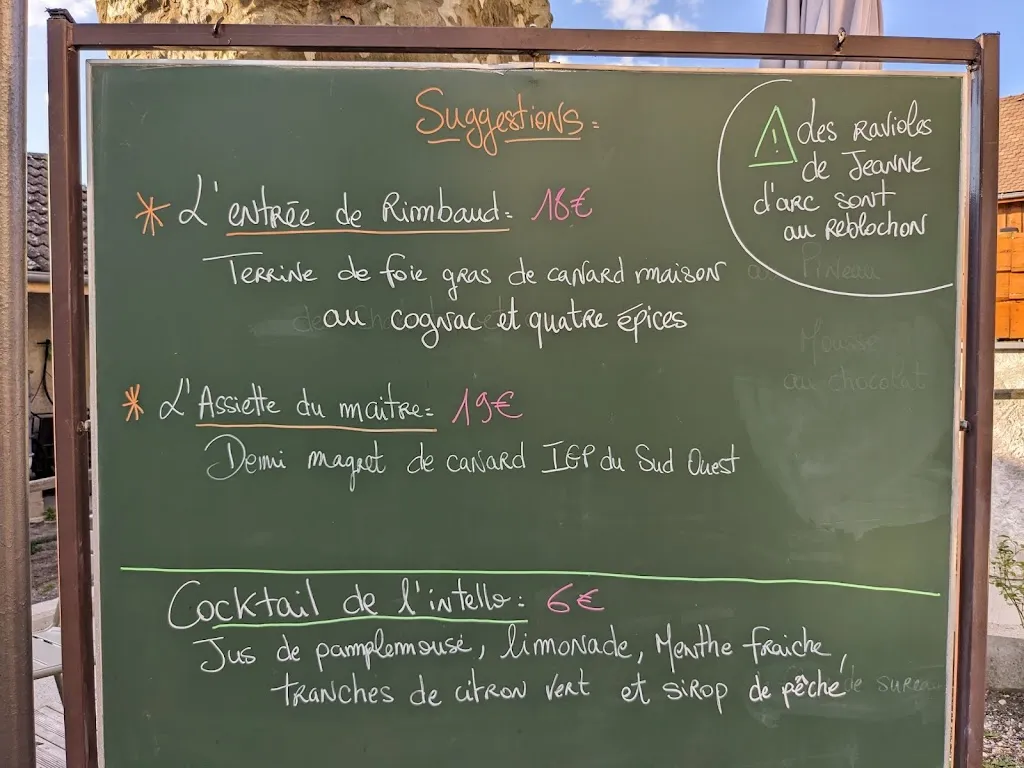 Suggestions:
* L'entrée de Rimbaud: 18€
Terrine de foie gras de canard maison
au cognac et quatre épices
* L'Assiette du maitre: 19€
Demi magret de canard IGP du Sud Ouest
Cocktail de l'intello: 6€
Jus de pamplemousse, limonade, Menthe fraiche,
tranches de citron vert et sirop de pêche
⚠ des ravioles
de Jeanne
d'arc sont
au reblochon
Pineau
Mousse
au chocolat
de sureau